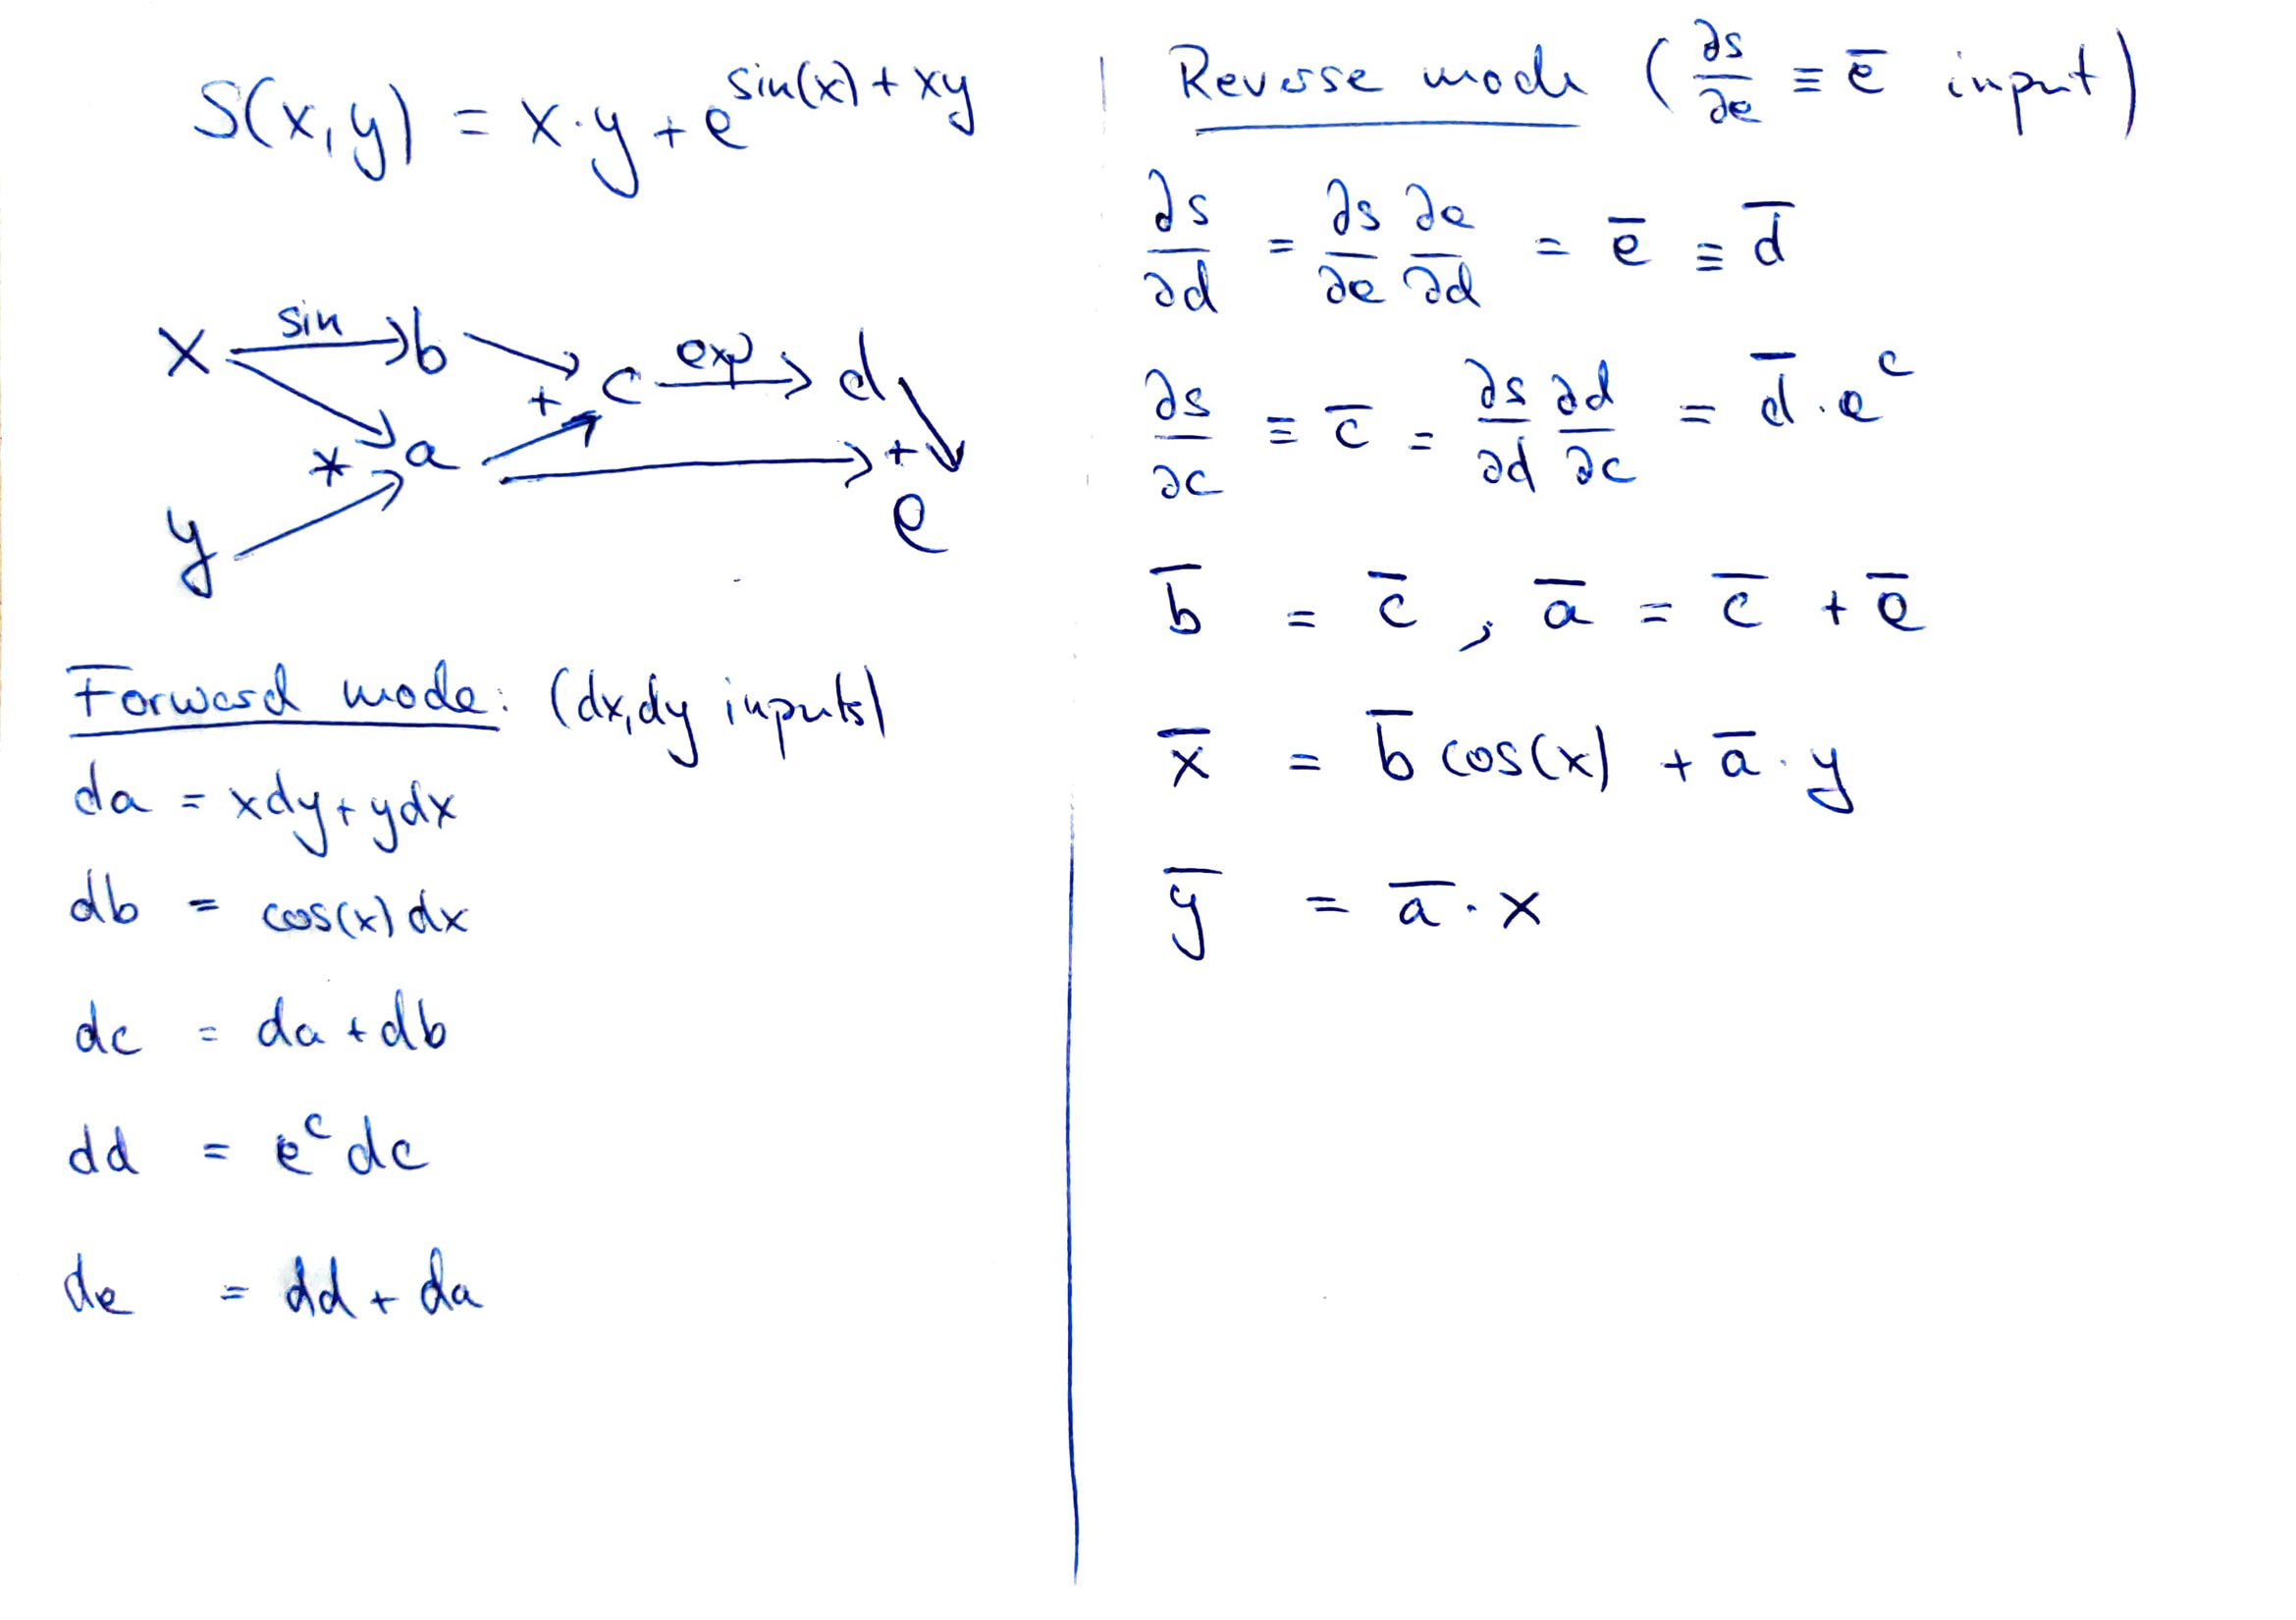 S(x,y) = x·y + e^{sin(x) + xy}
x sin b + c exp d
* a + e
y
Forward mode: (dx,dy inputs)
da = xdy + ydx
db = cos(x) dx
dc = da + db
dd = e^c dc
de = dd + da
Reverse mode (∂s/∂e ≡ e̅ input)
∂s/∂d = ∂s/∂e ∂e/∂d = e̅ ≡ d̅
∂s/∂c ≡ c̅ = ∂s/∂d ∂d/∂c = d̅ · e^c
b̅ = c̅ , a̅ = c̅ + e̅
x̅ = b̅ cos(x) + a̅ · y
y̅ = a̅ · x